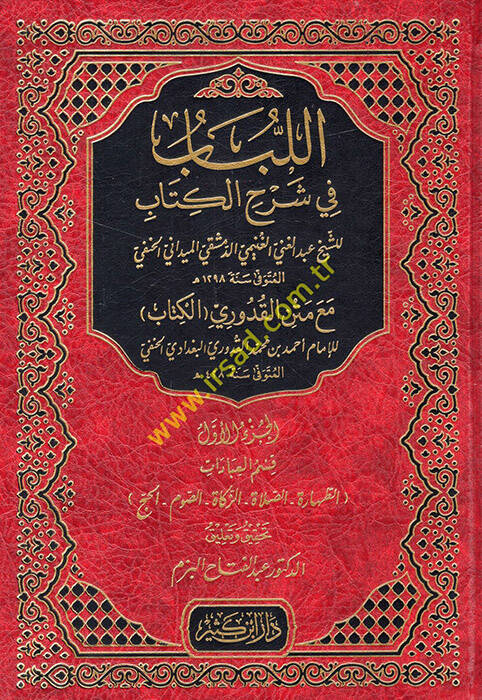 اللُّبَابُ
فِي شَرْحِ الْكِتَابِ
للشيخ عبد الغني الغنيمي الدمشقي الميداني الحنفي
المتوفى سنة ١٢٩٨ هـ
مَعَ مَتْنِ الْقُدُورِيِّ (الْكِتَابِ)
للإمام أحمد بن محمد القدوري البغدادي الحنفي
المتوفى سنة ٤٢٨ هـ
الجُزْءُ الأَوَّلُ
قسم العبادات
(الطهارة - الصلاة - الزكاة - الصوم - الحج)
تحقيق وتعليق
الدكتور عبد الفتاح البزم
دار ابن كثير
www.irsad.com.tr